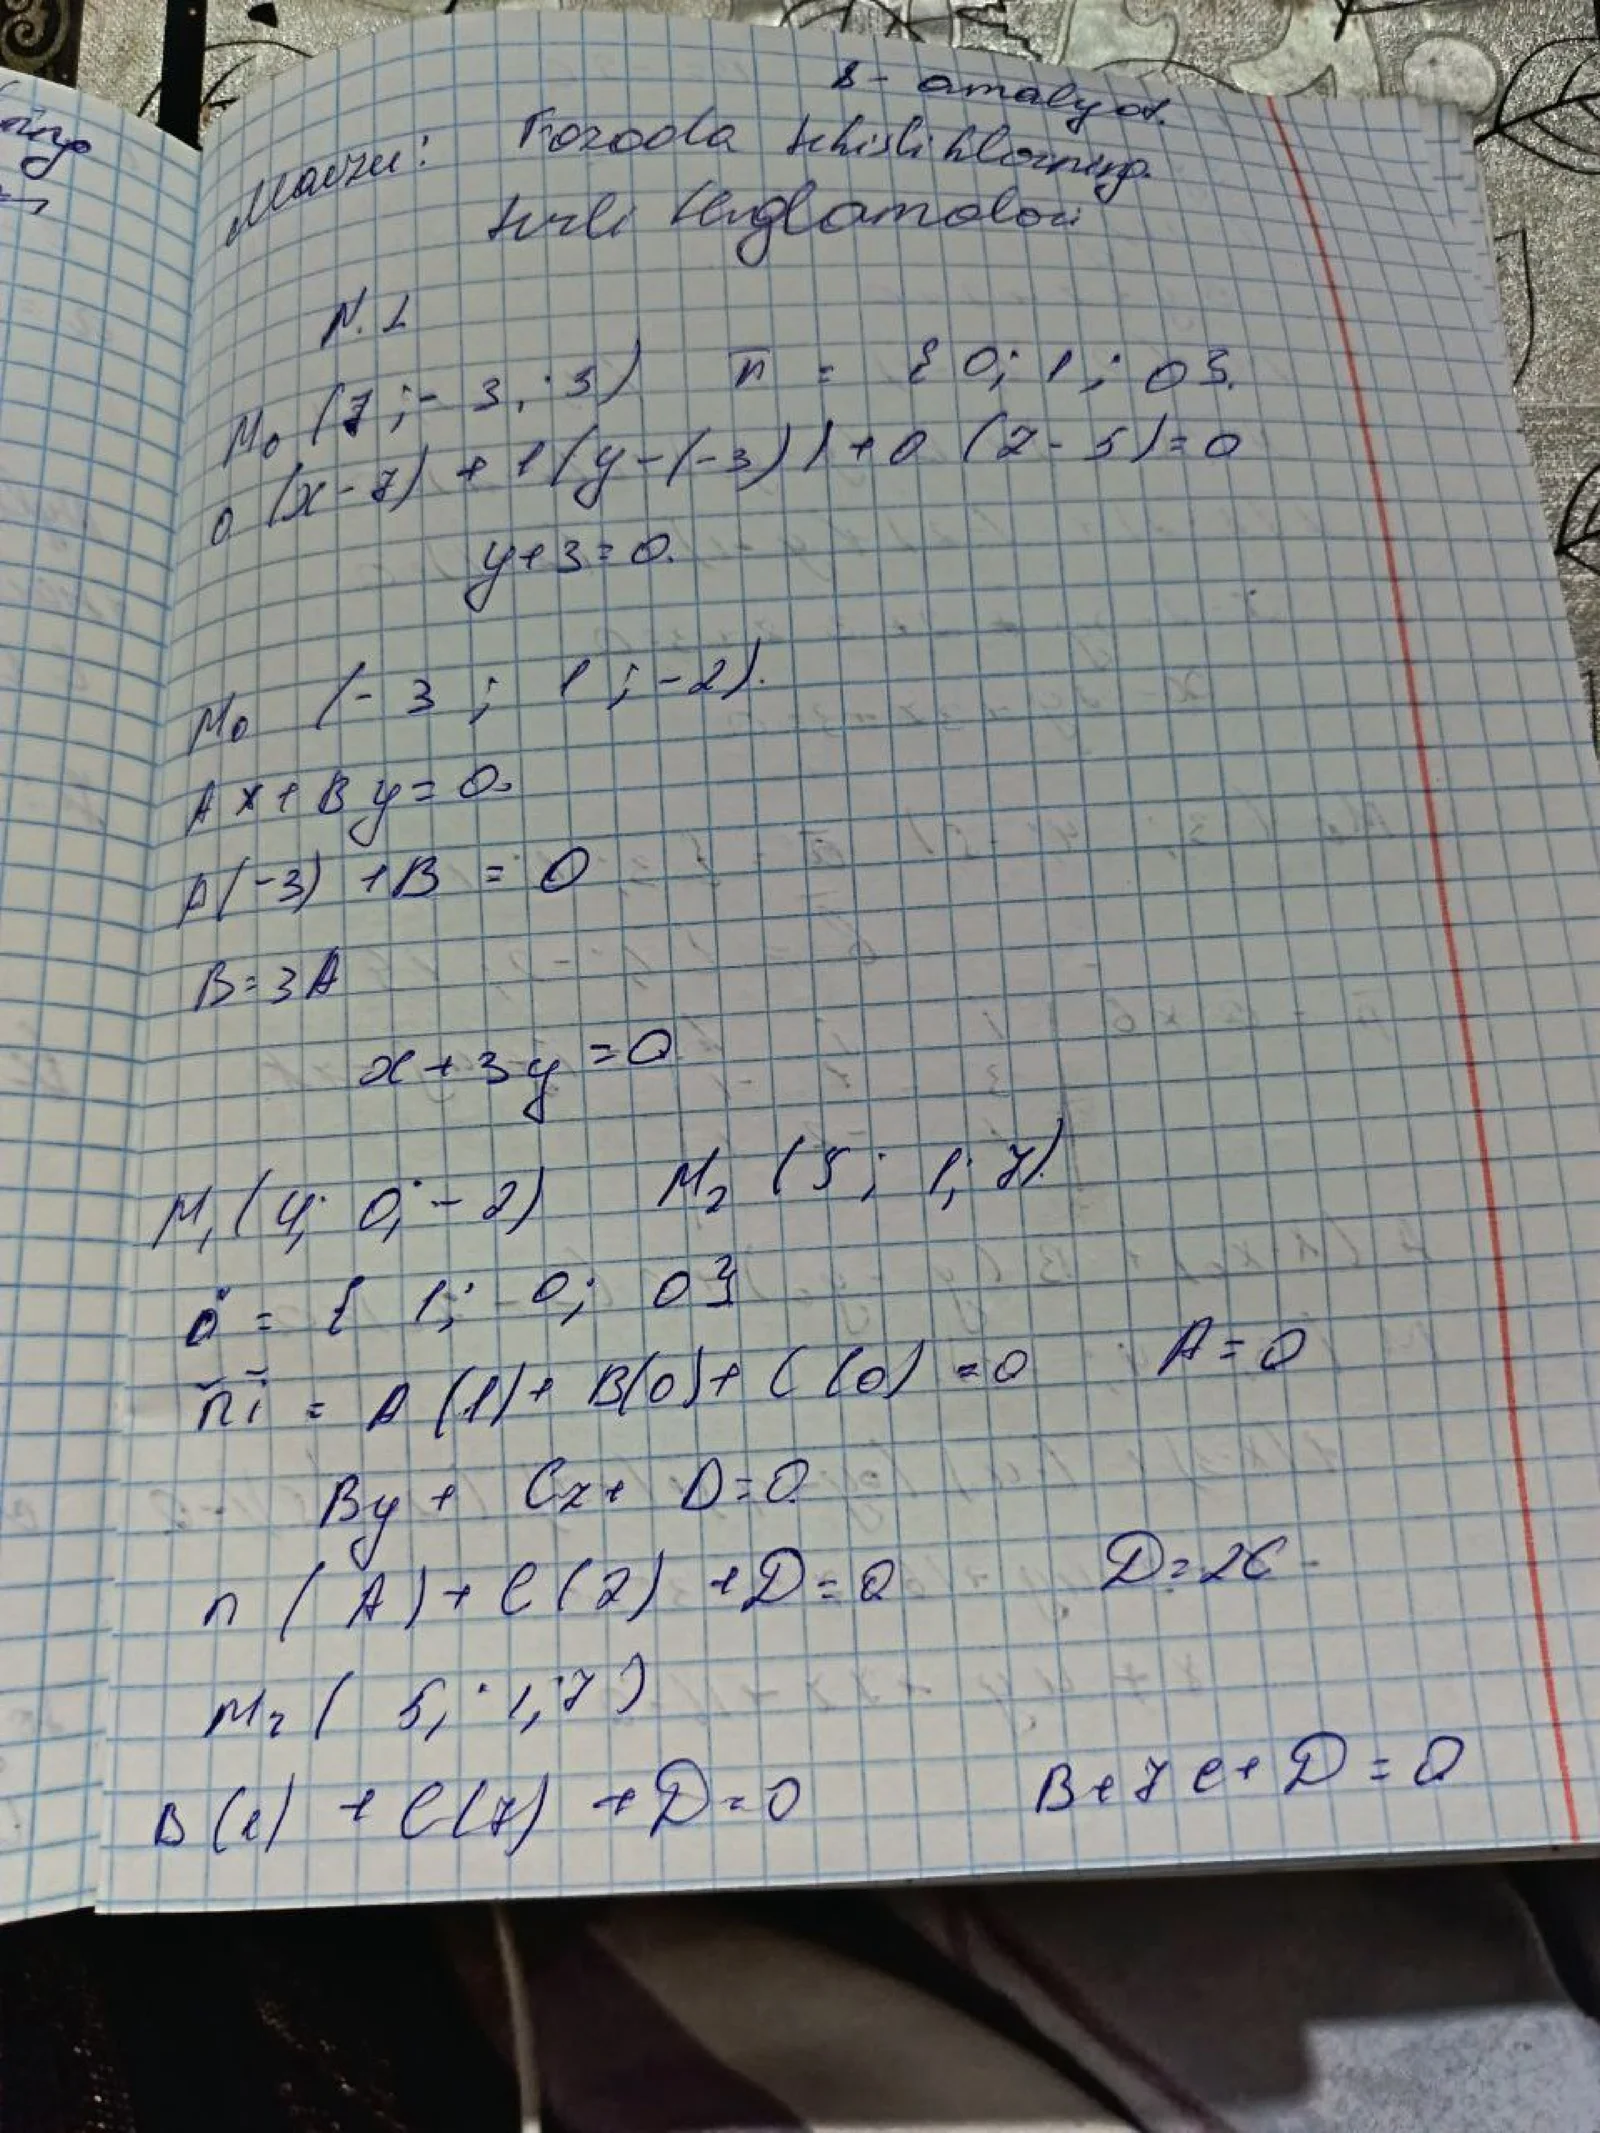 8 - amalyot.
Mavzu: Fazoda tekisliklarning
turli tenglamalari
N. 1
M₀ (7; -3; 3) n̅ = { 0; 1; 0}.
0 (x - 7) + 1 (y - (-3)) + 0 (z - 5) = 0
y + 3 = 0.
M₀ (-3; 1; -2).
Ax + By = 0.
A(-3) + B = 0
B = 3A
x + 3y = 0
M₁ (4; 0; -2) M₂ (5; 1; 7).
= { 1; 0; 0}
= A (1) + B(0) + C (0) = 0 A = 0
By + Cz + D = 0
n ( A) + C (2) + D = 0 D = 2C
M₂ ( 5; 1; 7)
B (1) + C (7) + D = 0 B + 7C + D = 0